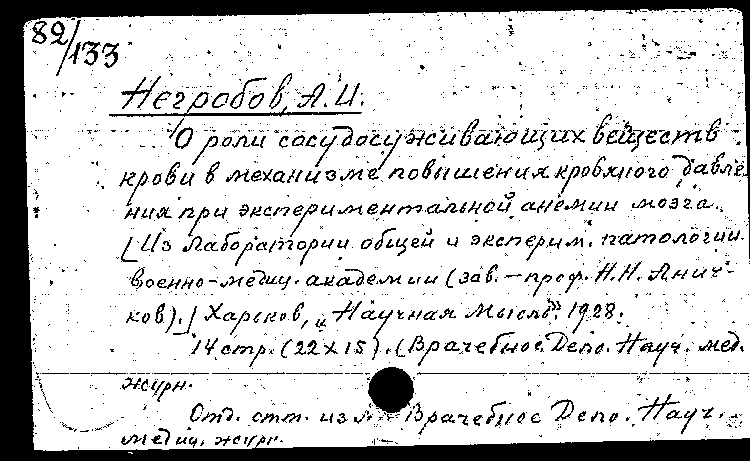 82/133
Негробов, А.И.
О роли сосудосуживающих веществ
крови в механизме повышения кровяного давле-
ния при экспериментальной анемии мозга.
[Из Лаборатории общей и эксперим. патологии
Военно-медиц. академии (зав. – проф. Н.Н. Анич-
ков).] Харьков, "Научная мысль", 1928.
14 стр. (22 x 15). (Врачебное Дело. Науч. мед.
журн.
Отд. отт. из Врачебное Дело. Науч.
медиц. журн.